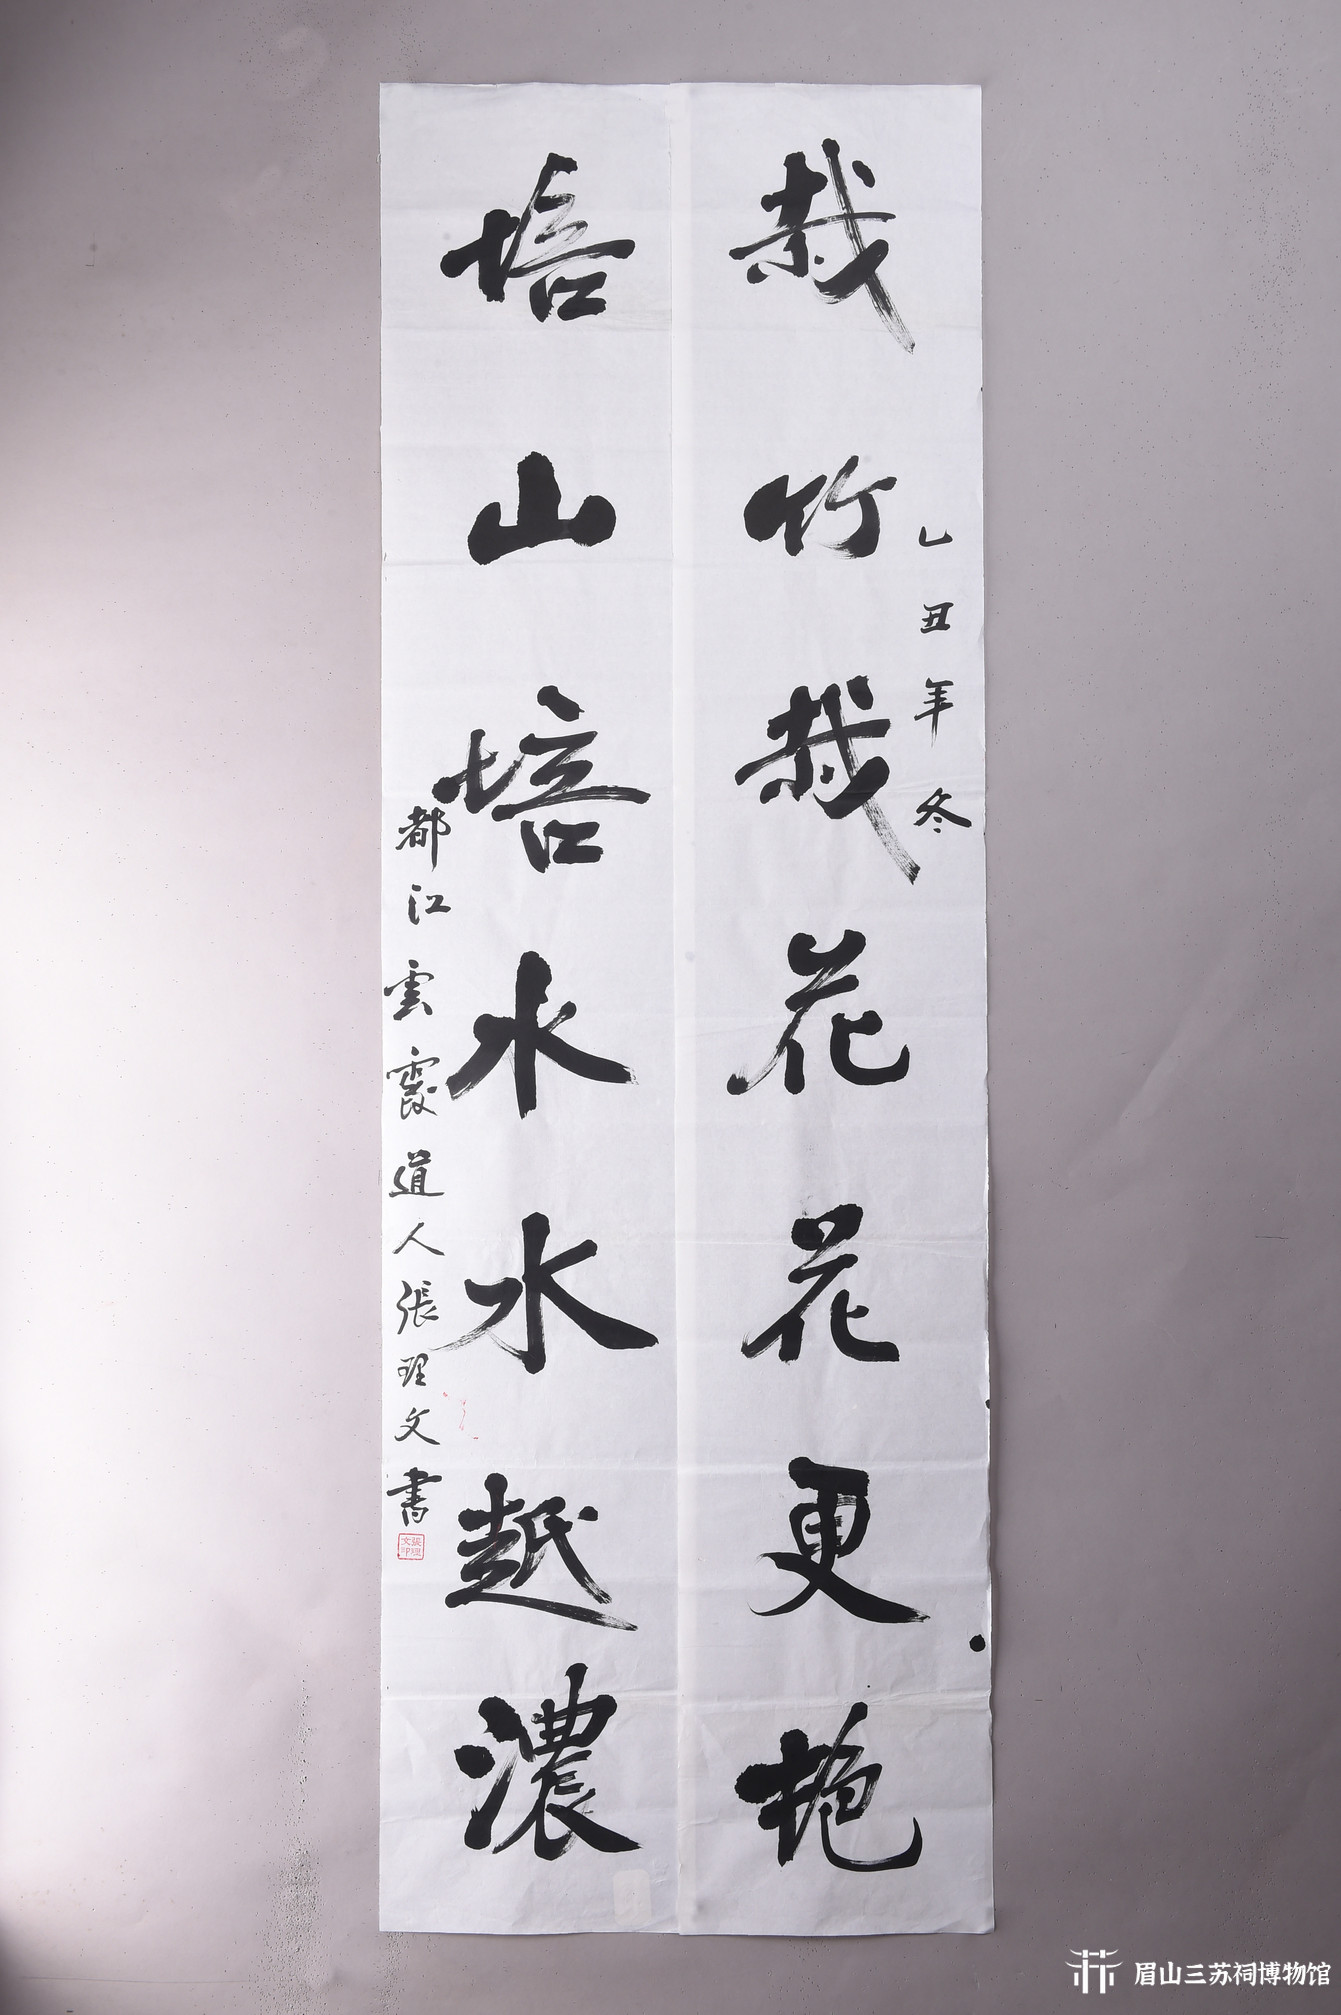 栽竹栽花花更艳
乙丑年冬
培山培水水越濃
都江雲霞道人張理文書
張理文印
眉山三苏祠博物馆